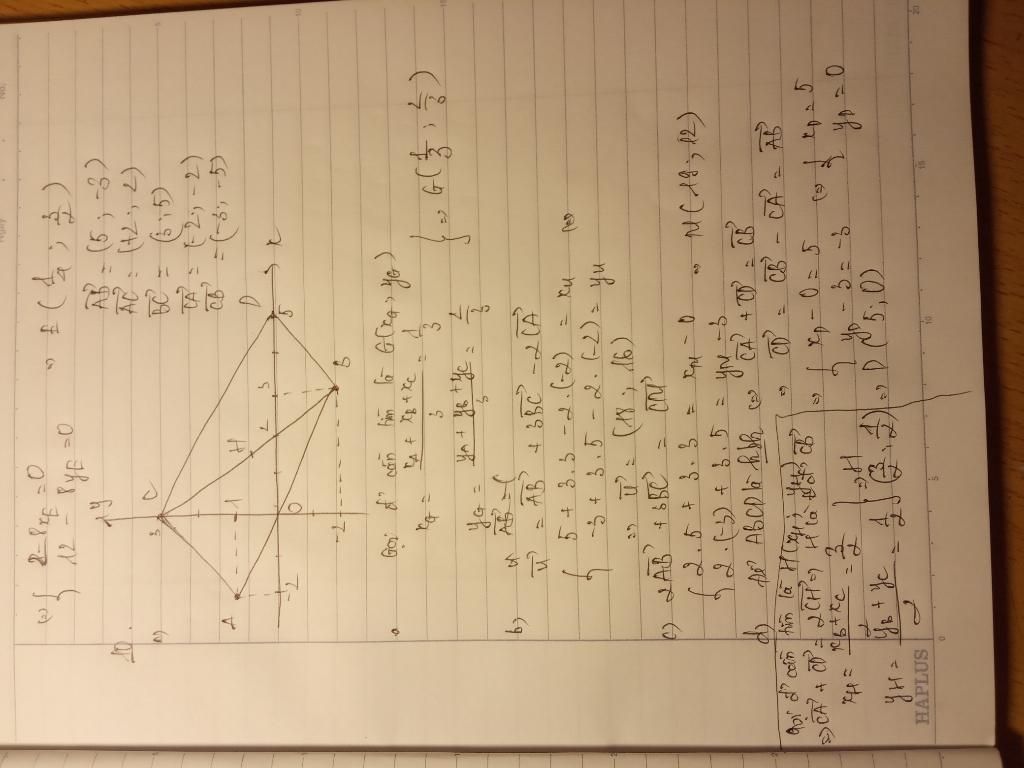 (=) { 2 - 8xE = 0
12 - 8yE = 0
=> E ( 1/4 ; 3/2 )
10.
a)
y
C
3
A
1
H
D
-2
O
2
3
5
x
-2
B
AB = (5 ; -3)
AC = (+2 ; 2)
BC = (3 ; 5)
CA = (-2 ; -2)
CB = (-3 ; -5)
Gọi đ' cần tìm là G(xG ; yG)
xG = xA + xB + xC / 3 = 1/3
yG = yA + yB + yC / 3 = 2/3
} => G( 1/3 ; 2/3 )
b)
AB = (
u = AB + 3BC - 2CA
{ 5 + 3.3 - 2.(-2) = xu
-3 + 3.5 - 2.(-2) = yu
(=)
=> u = (18 ; 16)
c) 2AB + 3BC = CM
{ 2.5 + 3.3 = xM - 0
2.(-3) + 3.5 = yM - 3
=> M(18 ; 12)
d) Để ABCD là hbh (=) CA + CD = CB
=> CD = CB - CA = AB
=> { xD - 0 = 5
yD - 3 = -3
(=) { xD = 5
yD = 0
=> D (5 ; 0)
Gọi đ' cần tìm là H(xH ; yH)
=> CA + CD = 2CH => H là
CB
xH = xB + xC / 2 = 3/2
yH = yB + yC / 2 = 1/2
} => H ( 3/2 ; 1/2 )
HAPLUS